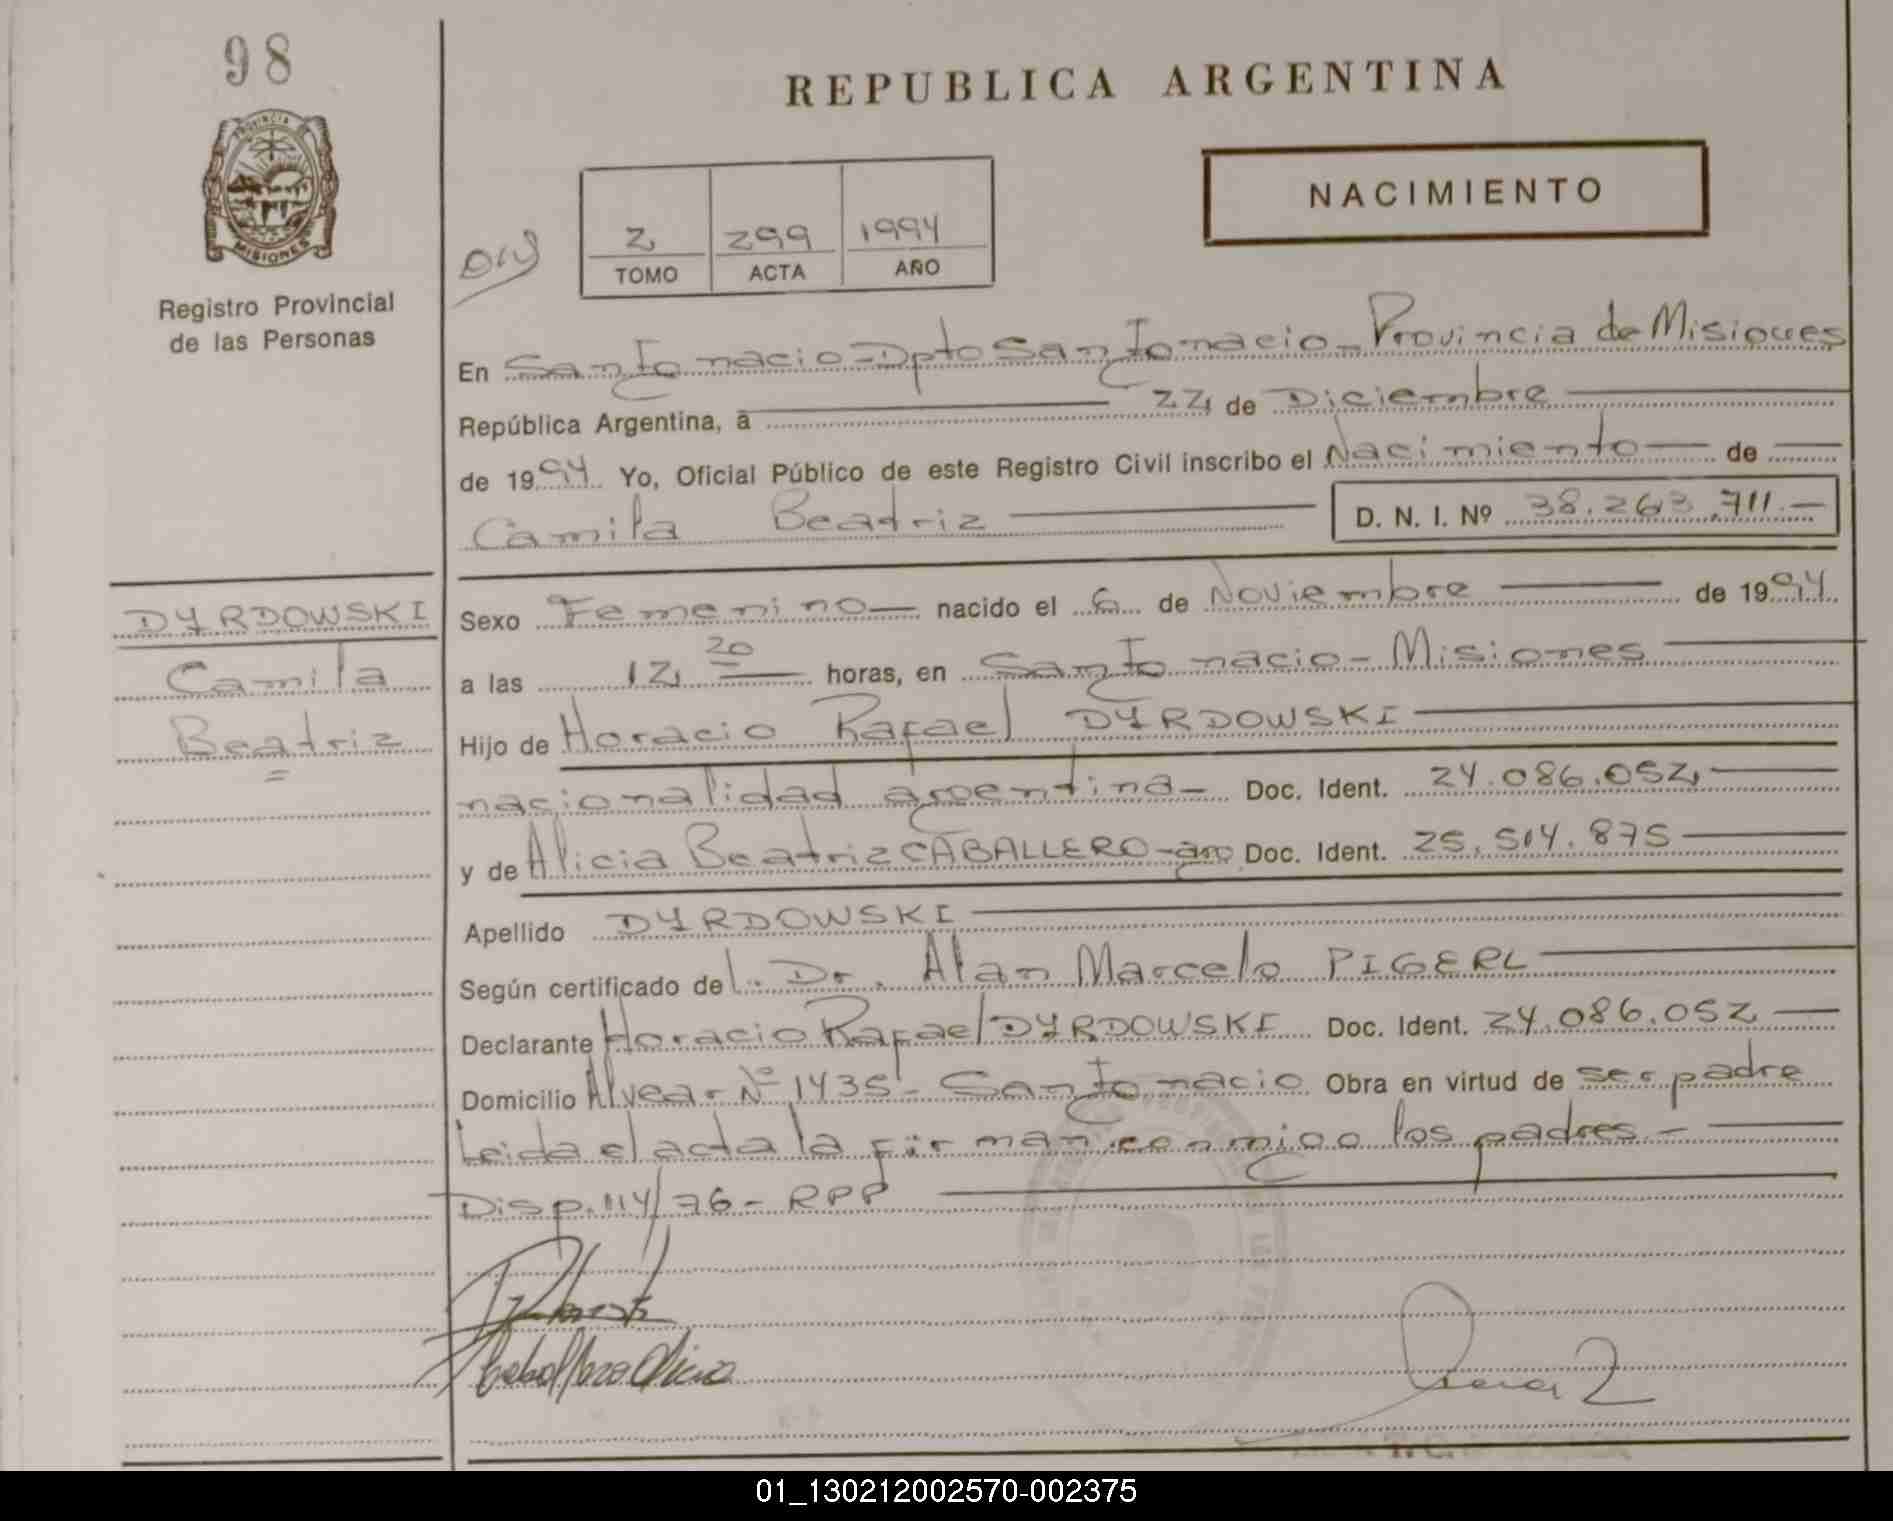 98
REPUBLICA ARGENTINA
PROVINCIA DE
MISIONES
Registro Provincial
de las Personas
NACIMIENTO
2 299 1994
TOMO ACTA AÑO
En San Ignacio - Dpto San Ignacio - Provincia de Misiones
República Argentina, a 22 de Diciembre
de 1994 Yo, Oficial Público de este Registro Civil inscribo el Nacimiento de
Camila Beatriz D. N. I. Nº 38.263.711.-
DYRDOWSKI
Camila
Beatriz
Sexo Femenino nacido el 6 de Noviembre de 1994
a las 12 20 horas, en San Ignacio - Misiones
Hijo de Horacio Rafael DYRDOWSKI
nacionalidad argentina - Doc. Ident. 24.086.052
y de Alicia Beatriz CABALLERO - arg Doc. Ident. 25.514.875
Apellido DYRDOWSKI
Según certificado del. Dr. Alan Marcelo PIGERL
Declarante Horacio Rafael DYRDOWSKI Doc. Ident. 24.086.052
Domicilio Alvear Nº 1435 - San Ignacio Obra en virtud de ser padre
Leida el acta la firman conmigo los padres. -
Disp. 114/76 - RPP
Caballero Alicia
01_130212002570-002375